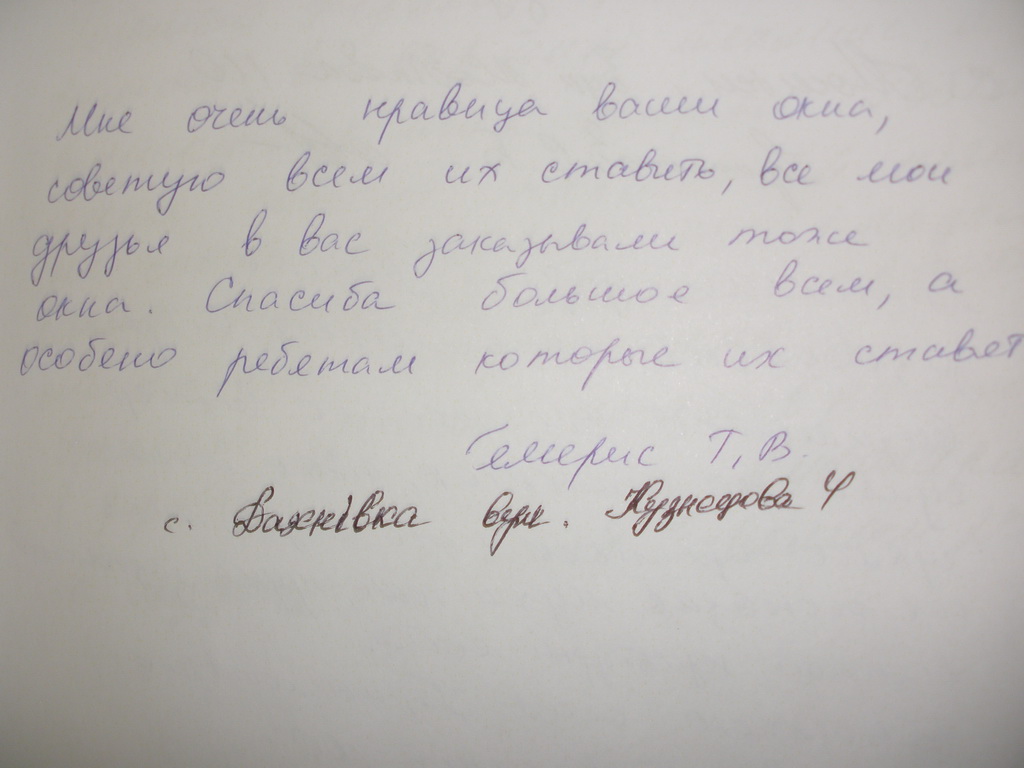 Мне очень нравица ваши окна,
советую всем их ставить, все мои
друзья в вас заказывали тоже
окна. Спасиба большое всем, а
особено ребятам которые их ставят
Гемерис Т, В.
с. Вахнівка вул. 4